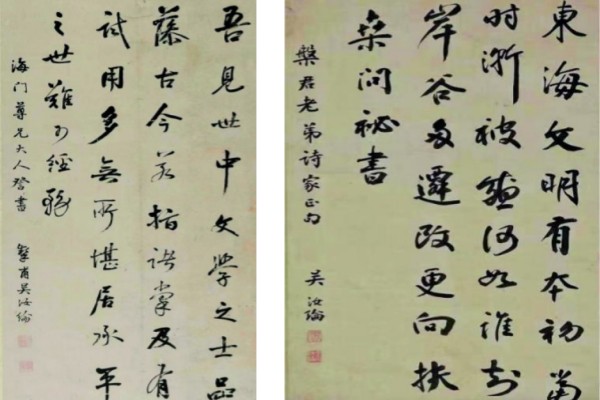 東海文明有本初當
時漸被盛何如誰知
岸谷多遷改更向扶
桑問祕書
槃君老弟詩家正句
吳汝綸
吾見世中文學之士品
藻古今若指諸掌及有
試用多無所堪居承平
之世難可經
海門尊兄大人
摯甫吳汝綸